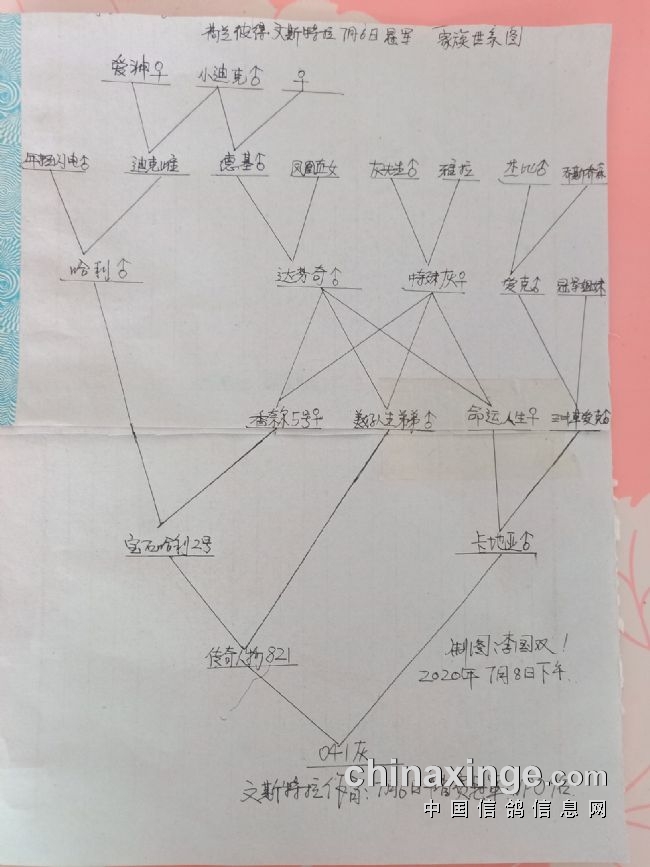 荷兰彼得·文斯特拉7月6日冠军 家族世系图
爱神♀ 小迪克♂ ♀
闪电♂ 迪克雌 德基♂ 凤凰血女 灰先生♂ 杰比♂
哈利♂ 达芬奇♂ 特殊灰♀ 爱克♂ 冠军姐妹
香奈尔5号♀ 弟弟♂ 命运人生♀ 爱克♂
宝石哈利2号 卡地亚♂
传奇人物821
制图:李国双!
2020年7月8日下午
041灰
文斯特拉作育:7月6日
chinaxinge.com
中国信鸽信息网